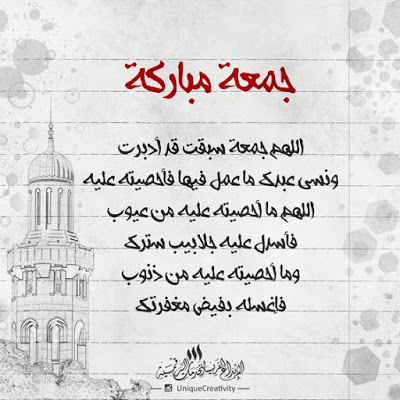 جمعة مباركة
اللهم جمعة سبقت قد أدبرت
ونسى عبدك ما عمل فيها فأحصيته عليه
اللهم ما أحصيته عليه من عيوب
فأسدل عليه جلابيب سترك
وما أحصيته عليه من ذنوب
فإغسله بفيض مغفرتك
UniqueCreativity